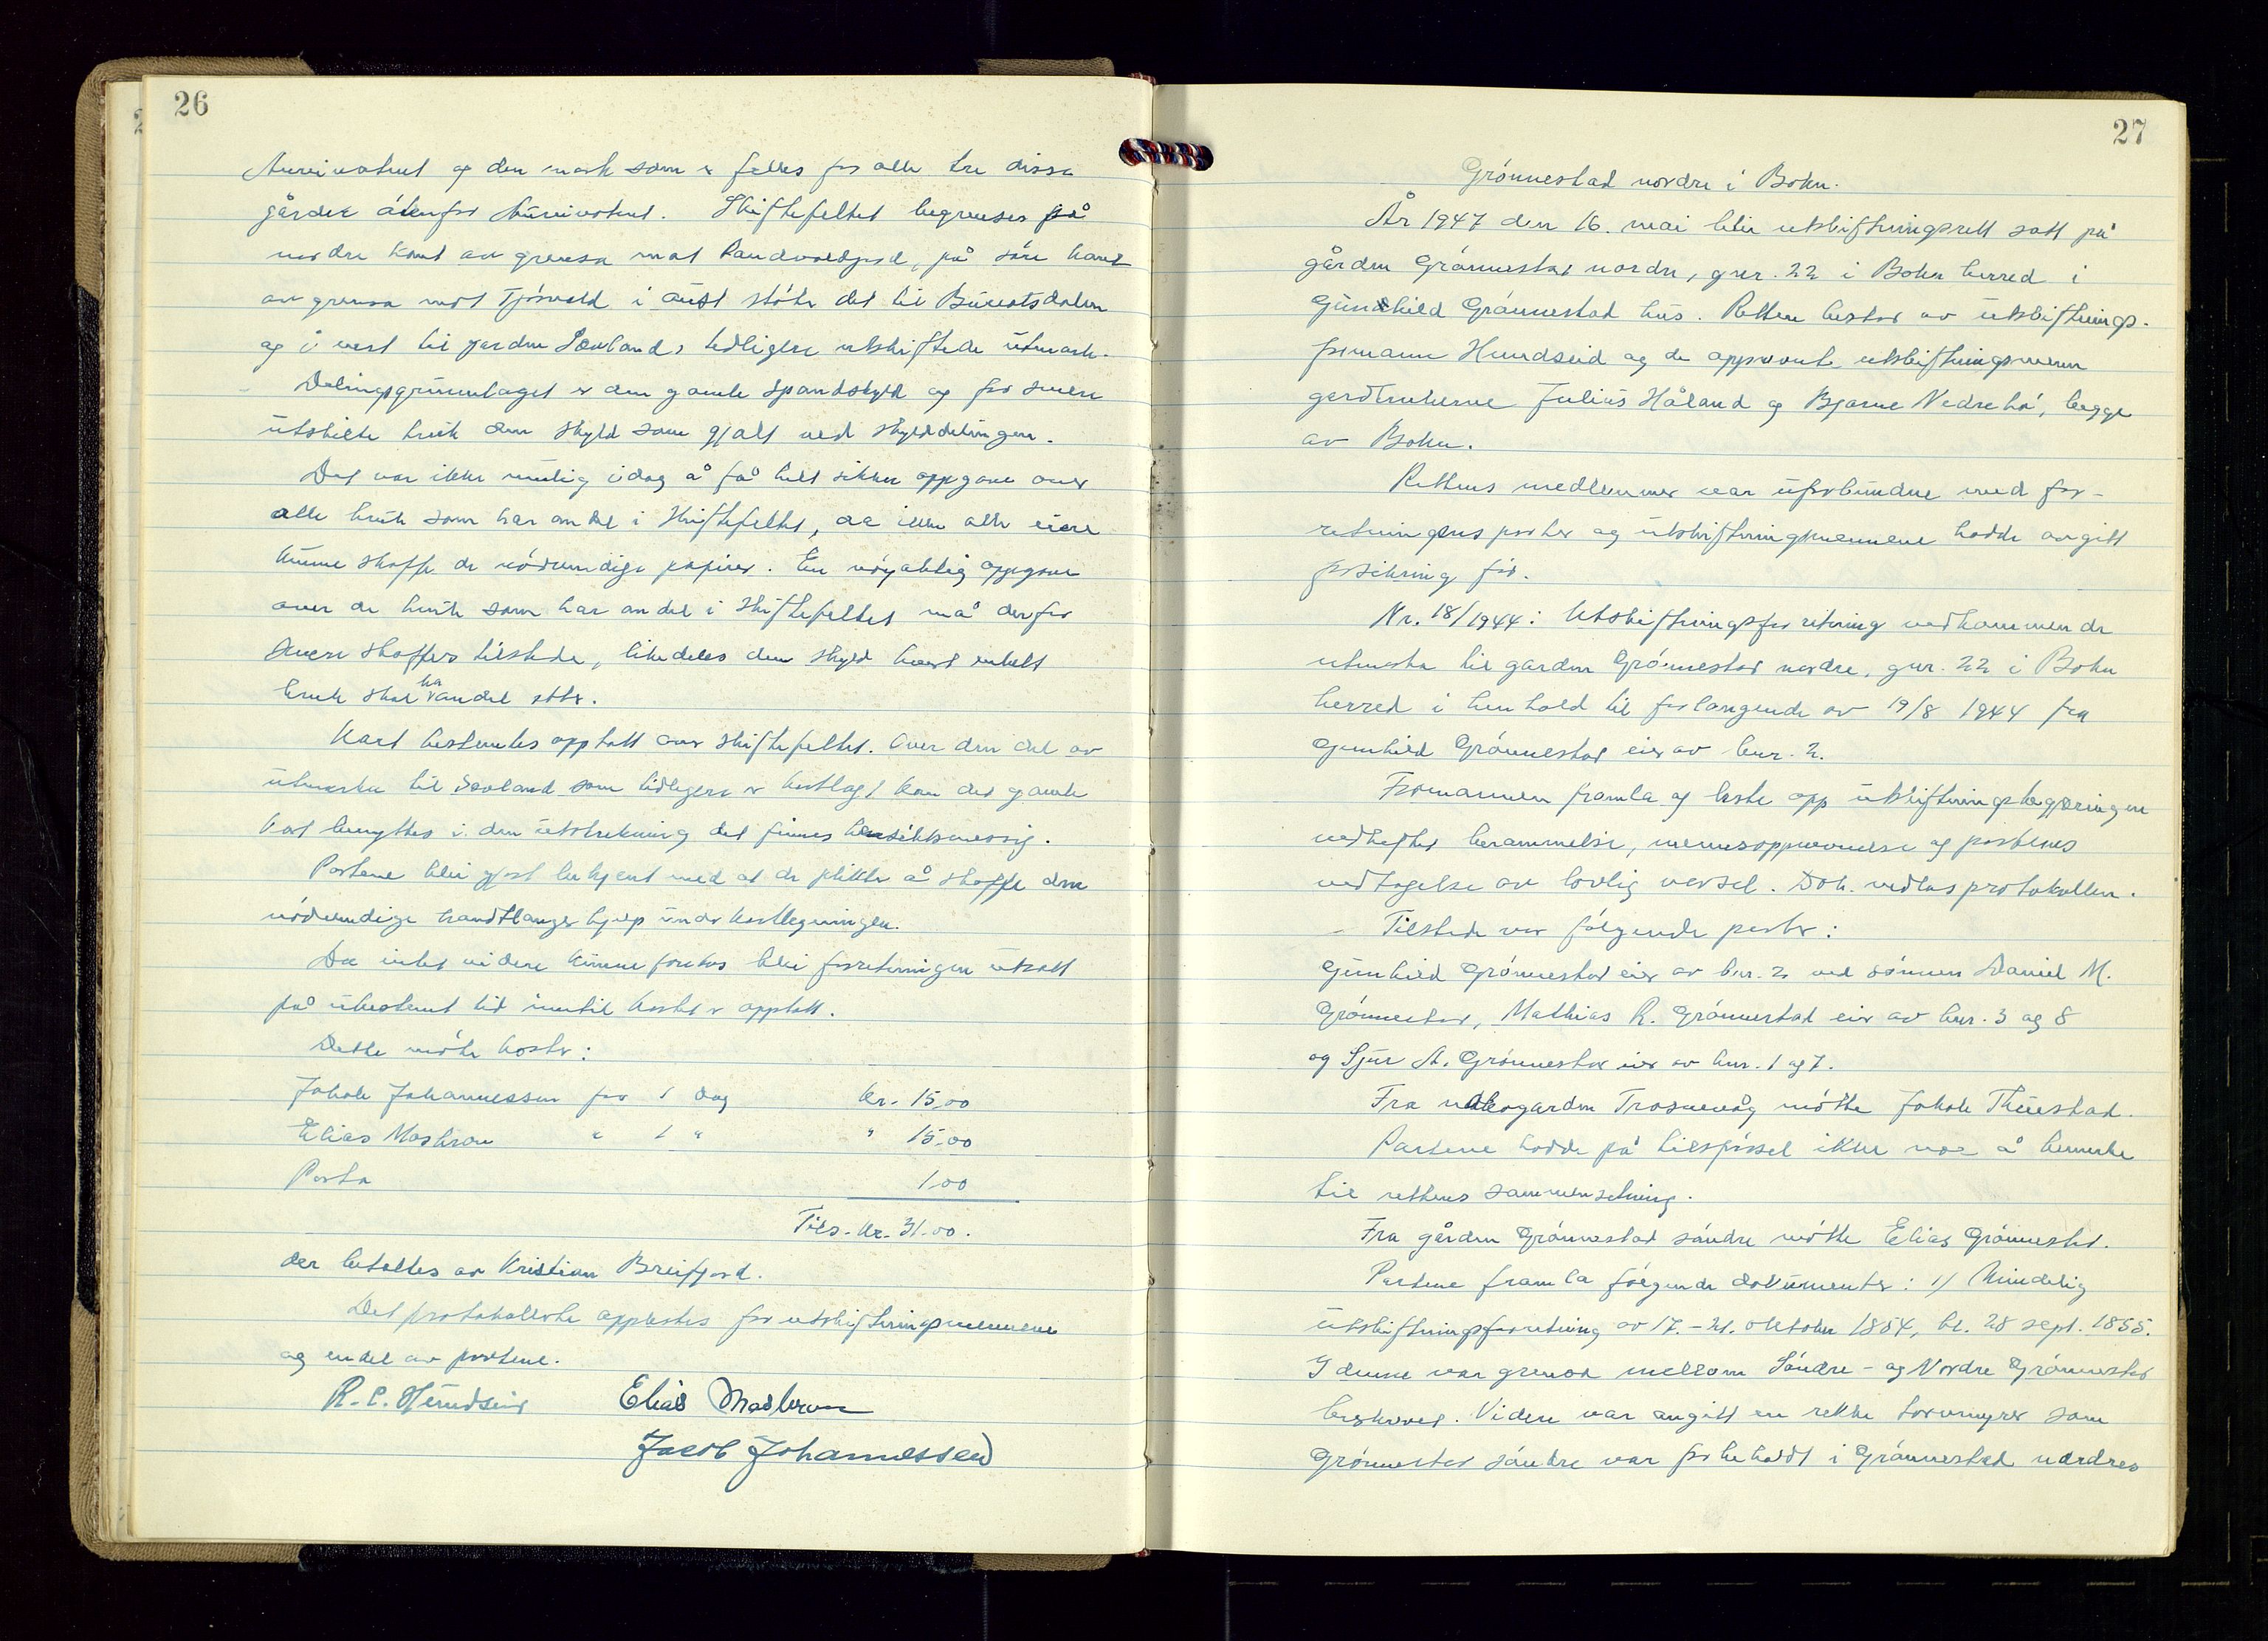 26
og den mark som er felles for alle tre disse
gårder Skiftefeltet begrenses på
nordre kant av grensa mot på søre kant
av grensa mot Tjøsvold i aust støter det til
og i vest til garden Søvlands tidligere utskiftede utmark.
Delingsgrunnlaget er den gamle spandskyld og for senere
utskilte bruk den skyld som gjalt ved skylddelingen.
Det var ikke mulig idag å få helt sikker oppgave over
alle bruk som har andel i skiftefeltet, da ikke alle eiere
kunne skaffe de nødvendige papirer. En nøyaktig oppgave
over de bruk som har andel i skiftefeltet må derfor
senere skaffes tilstede, likedeles den skyld hvert enkelt
bruk skal ha andel etter.
Kart bestemtes opptatt over skiftefeltet. Over den del av
utmarka til Søvland som tidligere er kartlagt kan det gamle
kart benyttes i den utstrekning det finnes hensiktsmessig.
Partene blei gjort bekjent med at de plikter å skaffe den
nødvendige handtlangerhjelp under kartlegningen.
Da intet videre kunne foretas blei forretningen utsatt
på ubestemt tid inntil kartet er opptatt.
Dette møte koster:
Jakob Johannessen for 1 dag kr. 15,00
Elias Mosbron " 1 " " 15,00
Porto 1,00
Tils. kr. 31.00.
der betaltes av Kristian Breifjord.
Det protokollerte opplestes for utskiftningsmennene
og endel av partene.
R. C. Hundseid Elias Mosbron
Jacob Johannessen
27
Grónnestad nordre i Bokn.
År 1947 den 16. mai blei utskiftningsrett satt på
gården Grónnestad nordre, gnr. 22 i Bokn herred i
Gunnhild Grónnestad hus. Retten bestod av utskiftnings-
formann Hundseid og de oppnevnte utskiftningsmenn
gardbrukerne Julius Håland og Bjarne Nedrebø, begge
av Bokn.
Rettens medlemmer var uforbundne med for-
retningens parter og utskiftningsmennene hadde avgitt
forsikring før.
Nr. 18/1944: Utskiftningsforretning vedkommende
utmarka til garden Grónnestad nordre, gnr. 22 i Bokn
herred i henhold til forlangende av 19/8 1944 fra
Gunhild Grónnestad eier av bnr. 2.
Formannen framla og leste opp utskiftningsbegjæringen
vedheftet berammelse, mennesoppnevnelse og partenes
vedtagelse av lovlig varsel. Dok. vedlas protokollen.
Tilstede var følgende parter:
Gunhild Grónnestad eier av bnr. 2 ved sønnen Daniel M.
Grónnestad, Mathias R. Grónnestad eier av bnr. 3 og 8
og Sjur A. Grónnestad eier av bnr. 1 og 7.
Fra nabogarden Trosnevåg møtte Jakob Thuestad.
Partene hadde på tilspørsel ikke noe å bemerke
til rettens sammensetning.
Fra gården Grónnestad søndre møtte Elias Grónnestad.
Partene framla følgende dokumenter: 1) Mindelig
utskiftningsforretning av 17.-21. oktober 1854, tl. 28 sept. 1855.
I denne var grensa mellom Søndre- og Nordre Grónnestad
beskrevet. Videre var angitt en rekke torvmyrer som
Grónnestad søndre var forbeholdt i Grónnestad nordres